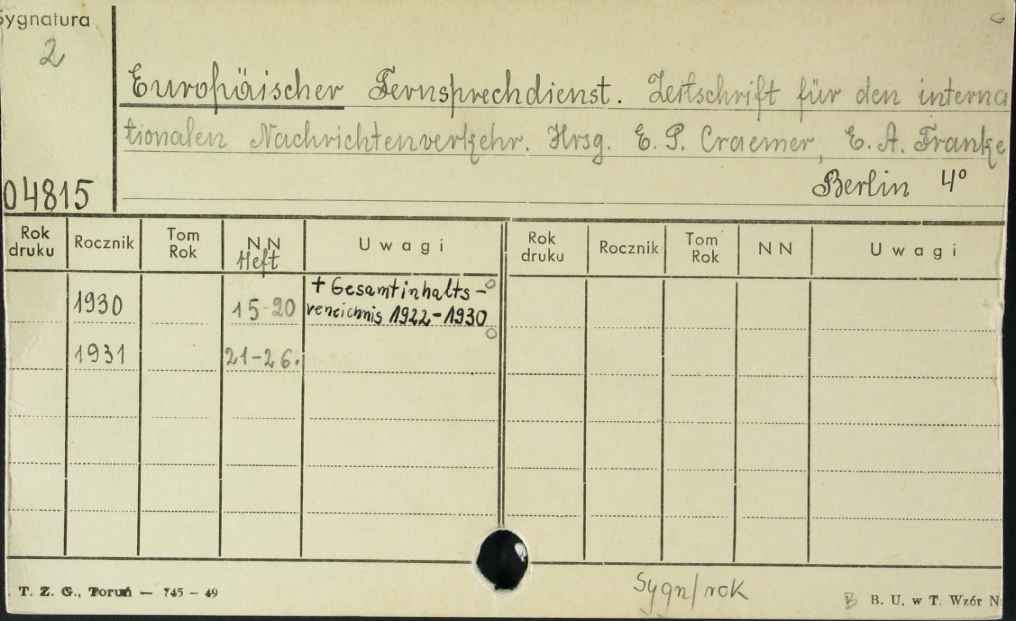 Sygnatura
2
04815
Europäischer Fernsprechdienst. Zeitschrift für den interna
tionalen Nachrichtenverkehr. Hrsg. E. P. Craemer, E. A. Franke
Berlin 4°
Rok druku Rocznik Tom Rok NN Heft Uwagi Rok druku Rocznik Tom Rok NN Uwagi
1930 15-20 + Gesamtinhalts-
verzeichnis 1922-1930
1931 21-26.
Sygn/rok
T. Z. G., Toruń — 745 — 49
B. U. w T. Wzór N